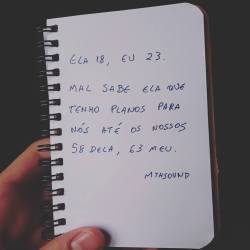 ELA 18, EU 23.
MAL SABE ELA QUE
TENHO PLANOS PARA
NÓS ATÉ OS NOSSOS
58 DELA, 63 MEU.
MTHSOUND